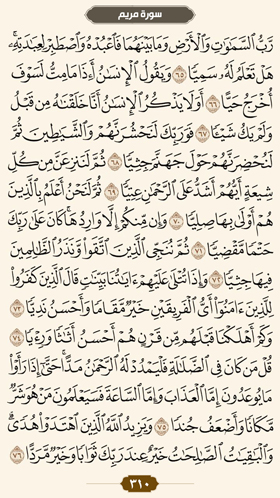 سورة مريم
رَّبُّ ٱلسَّمَٰوَٰتِ وَٱلْأَرْضِ وَمَا بَيْنَهُمَا فَٱعْبُدْهُ وَٱصْطَبِرْ لِعِبَٰدَتِهِۦۚ
هَلْ تَعْلَمُ لَهُۥ سَمِيًّا ٦٥ وَيَقُولُ ٱلْإِنسَٰنُ أَءِذَا مَا مِتُّ لَسَوْفَ
أُخْرَجُ حَيًّا ٦٦ أَوَلَا يَذْكُرُ ٱلْإِنسَٰنُ أَنَّا خَلَقْنَٰهُ مِن قَبْلُ
وَلَمْ يَكُ شَيْـًٔا ٦٧ فَوَرَبِّكَ لَنَحْشُرَنَّهُمْ وَٱلشَّيَٰطِينَ ثُمَّ
لَنُحْضِرَنَّهُمْ حَوْلَ جَهَنَّمَ جِثِيًّا ٦٨ ثُمَّ لَنَنزِعَنَّ مِن كُلِّ
شِيعَةٍ أَيُّهُمْ أَشَدُّ عَلَى ٱلرَّحْمَٰنِ عِتِيًّا ٦٩ ثُمَّ لَنَحْنُ أَعْلَمُ بِٱلَّذِينَ
هُمْ أَوْلَىٰ بِهَا صِلِيًّا ٧٠ وَإِن مِّنكُمْ إِلَّا وَارِدُهَاۚ كَانَ عَلَىٰ رَبِّكَ
حَتْمًا مَّقْضِيًّا ٧١ ثُمَّ نُنَجِّى ٱلَّذِينَ ٱتَّقَوا۟ وَّنَذَرُ ٱلظَّٰلِمِينَ
فِيهَا جِثِيًّا ٧٢ وَإِذَا تُتْلَىٰ عَلَيْهِمْ ءَايَٰتُنَا بَيِّنَٰتٍ قَالَ ٱلَّذِينَ كَفَرُوا۟
لِلَّذِينَ ءَامَنُوٓا۟ أَىُّ ٱلْفَرِيقَيْنِ خَيْرٌ مَّقَامًا وَأَحْسَنُ نَدِيًّا ٧٣
وَكَمْ أَهْلَكْنَا قَبْلَهُم مِّن قَرْنٍ هُمْ أَحْسَنُ أَثَٰثًا وَرِءْيًا ٧٤
قُلْ مَن كَانَ فِى ٱلضَّلَٰلَةِ فَلْيَمْدُدْ لَهُ ٱلرَّحْمَٰنُ مَدًّاۚ حَتَّىٰٓ إِذَا رَأَوْا۟
مَا يُوعَدُونَ إِمَّا ٱلْعَذَابَ وَإِمَّا ٱلسَّاعَةَ فَسَيَعْلَمُونَ مَنْ هُوَ شَرٌّ
مَّكَانًا وَأَضْعَفُ جُندًا ٧٥ وَيَزِيدُ ٱللَّهُ ٱلَّذِينَ ٱهْتَدَوْا۟ هُدًىۗ
وَٱلْبَٰقِيَٰتُ ٱلصَّٰلِحَٰتُ خَيْرٌ عِندَ رَبِّكَ ثَوَابًا وَخَيْرٌ مَّرَدًّا ٧٦
٣١٠